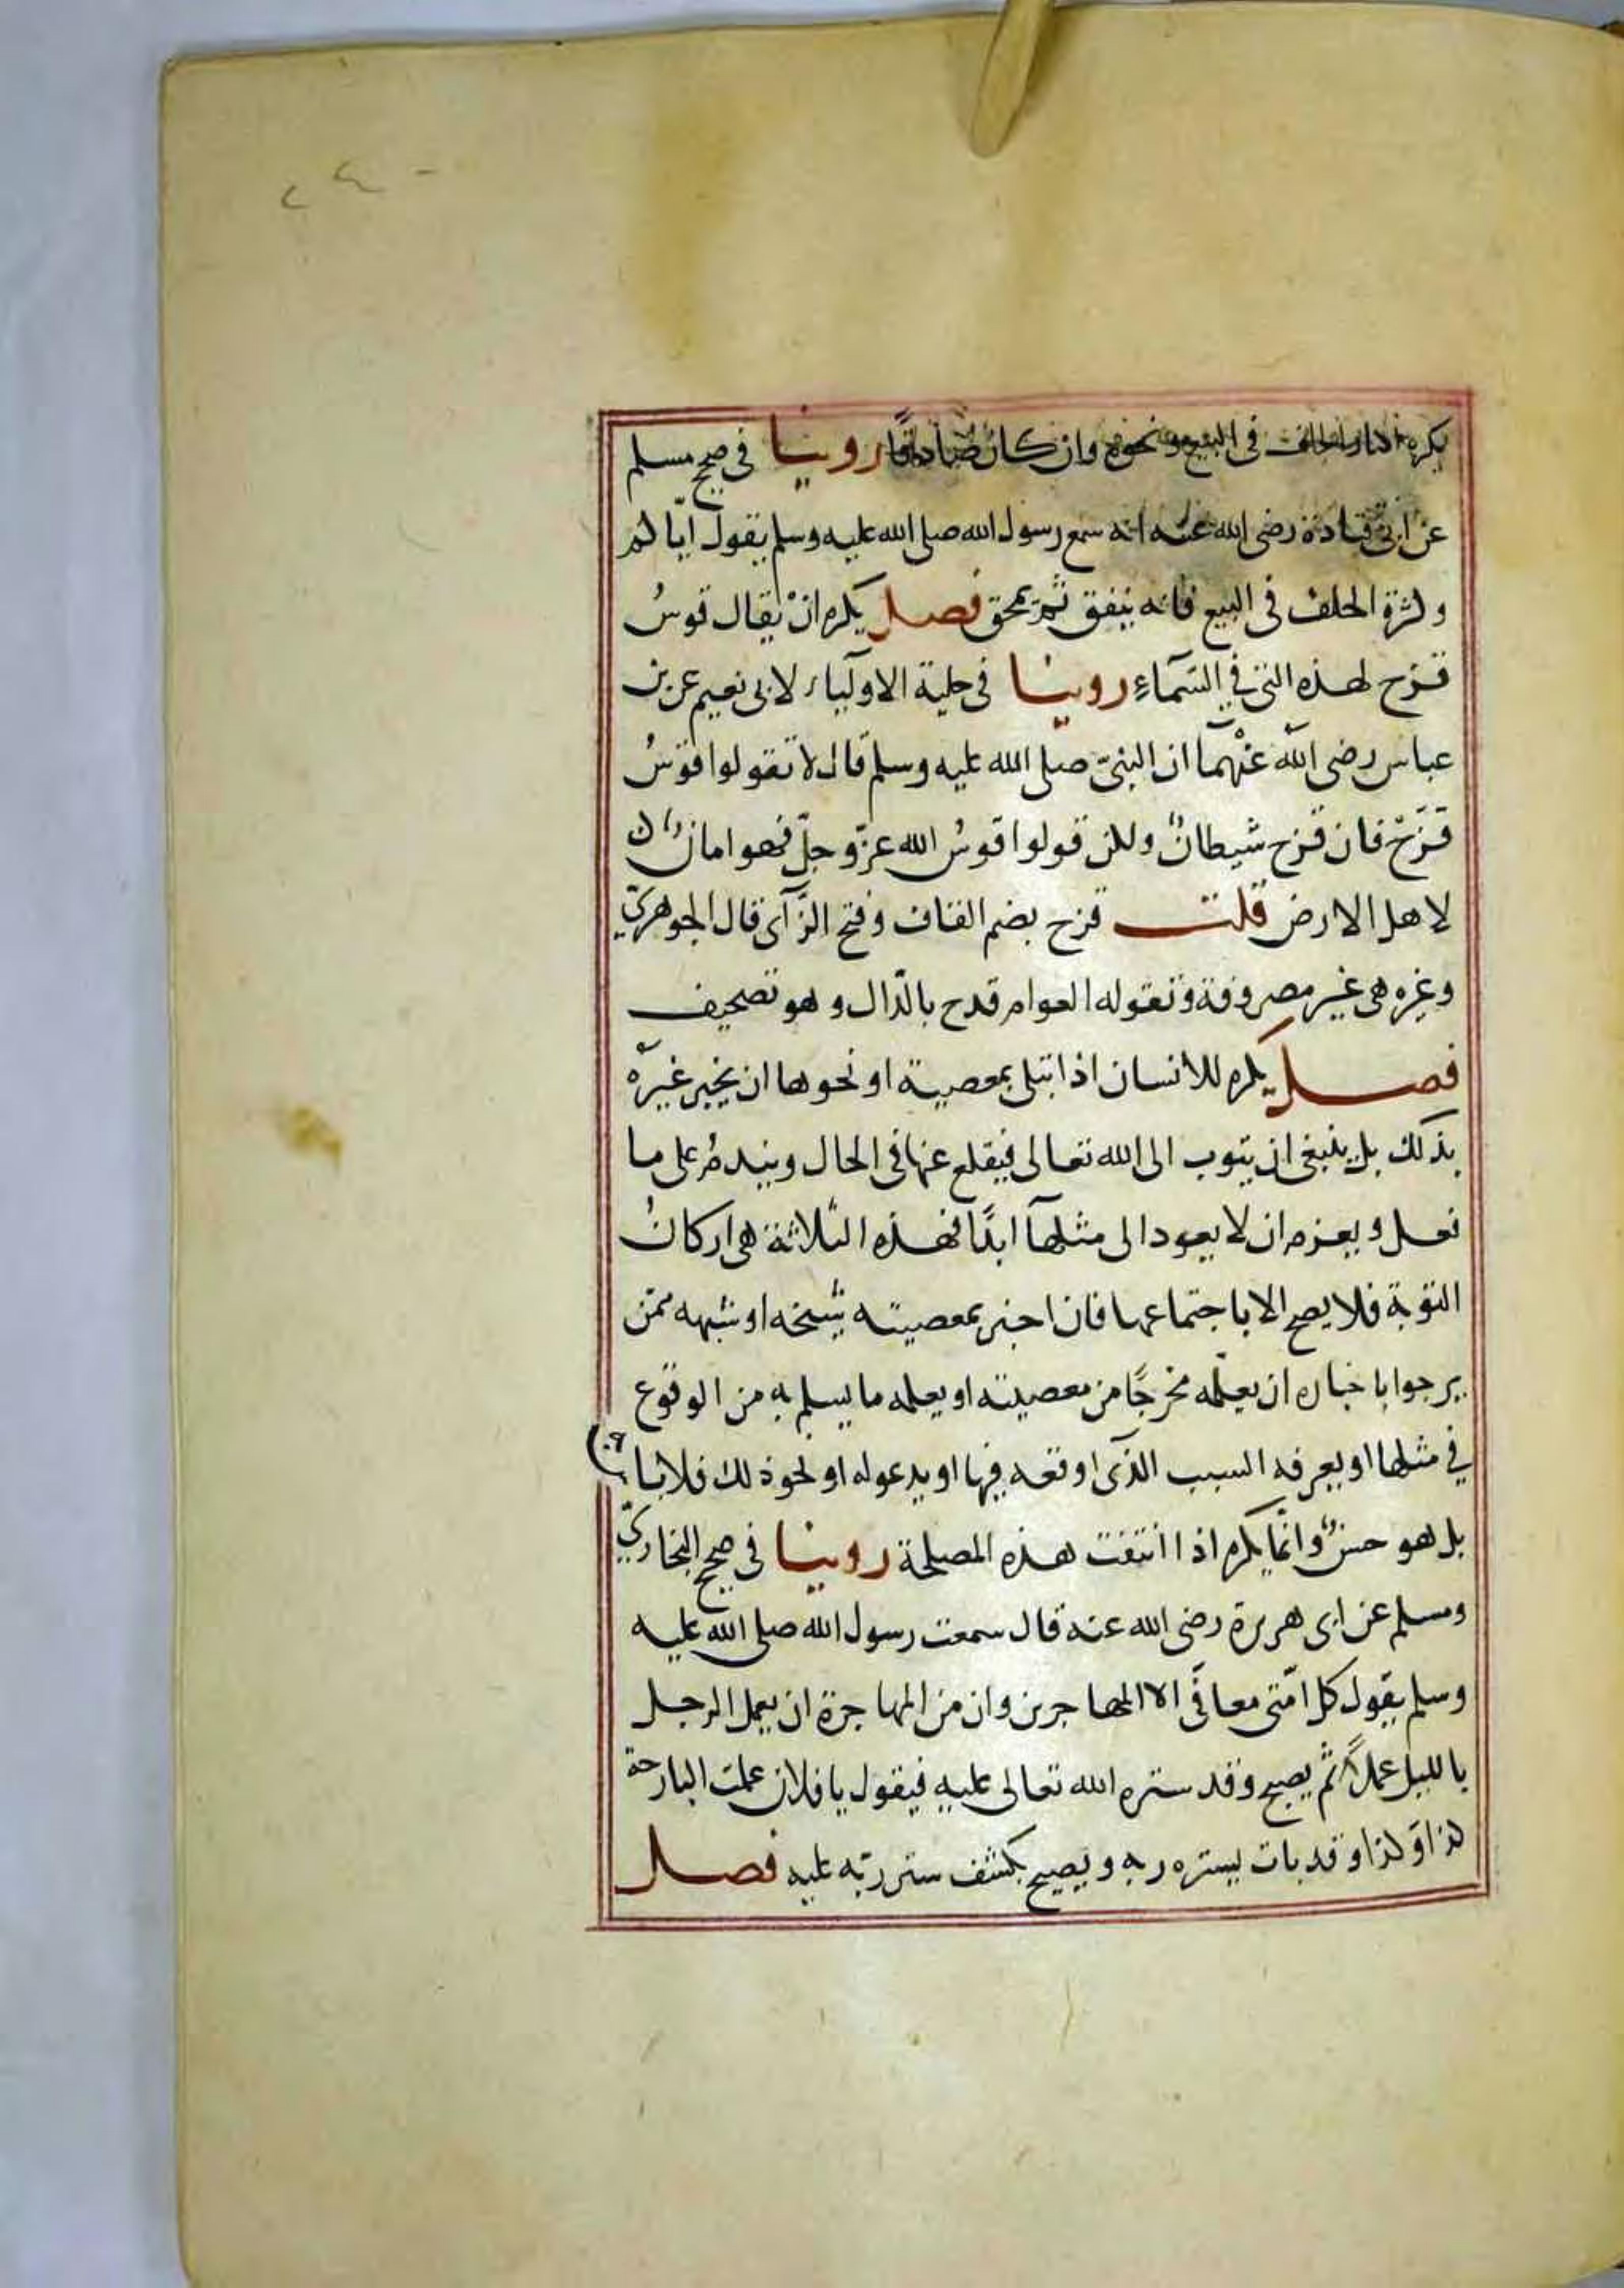 يكره اكثار الحلف في البيع ونحوه وان كان صادقًا روينا في صحيح مسلم
عن ابي قتادة رضى الله عنه انه سمع رسول الله صلى الله عليه وسلم يقول ايّاكم
وكثرة الحلف في البيع فانه ينفق ثمّ يمحق فصل يكره انْ يقال قوسُ
قزح لهذه التي في السّمآءِ روينا في حلية الاوليآء لابى نعيم عن بن
عباس رضى الله عنْهما ان النبيّ صلى الله عليه وسلم قال لا تقولوا قوْسُ
قزَحْ فان قزح شيطانٌ ولكن قولوا قوسُ الله عزّ وجلّ فهو امانٌ
لاهل الارض قلت قزح بضم القاف وفتح الزّآى قال الجوهريّ
وغيره هى غير مصروفة وتقوله العوام قدح بالدّال وهو تصحيف
فصل يكره للانسان اذا ابتلى بمعصية او نحوها ان يخبر غيرَه
بذلك بل ينبغى ان يتوب الى الله تعالى فيقلع عنها فى الحال ويندمُ على ما
فعل ويعزم ان لا يعود الى مثلهآ ابدًا فهذه الثلاثة هى اركانُ
التوبة فلا يصح الا باجتماعها فان اخبر بمعصيته شيخه او شبهه ممّن
يرجوا باخباره ان يعلّمه مخرجًا من معصيته او يعلمه ما يسلم به من الوقوع
في مثلها او يعرفه السبب الذّى اوقعه فيها او يدعوله او نحو ذلك فلا باس به
بل هو حسنٌ وانّما يكره اذا انتفت هذه المصلحة روينا في صحيح البخاريّ
ومسلم عن ابى هريرة رضى الله عنه قال سمعت رسول الله صلى الله عليه
وسلم يقول كل امّتى معافًى الا المهاجرين وان من المهاجرة ان يعمل الرجل
بالليل عملاً ثمّ يصبح وقد ستره الله تعالى عليه فيقول يا فلان عملت البارحة
كذا وَكذا وقد بات يستره ربه ويصبح يكشف ستر ربّه عليه فصل